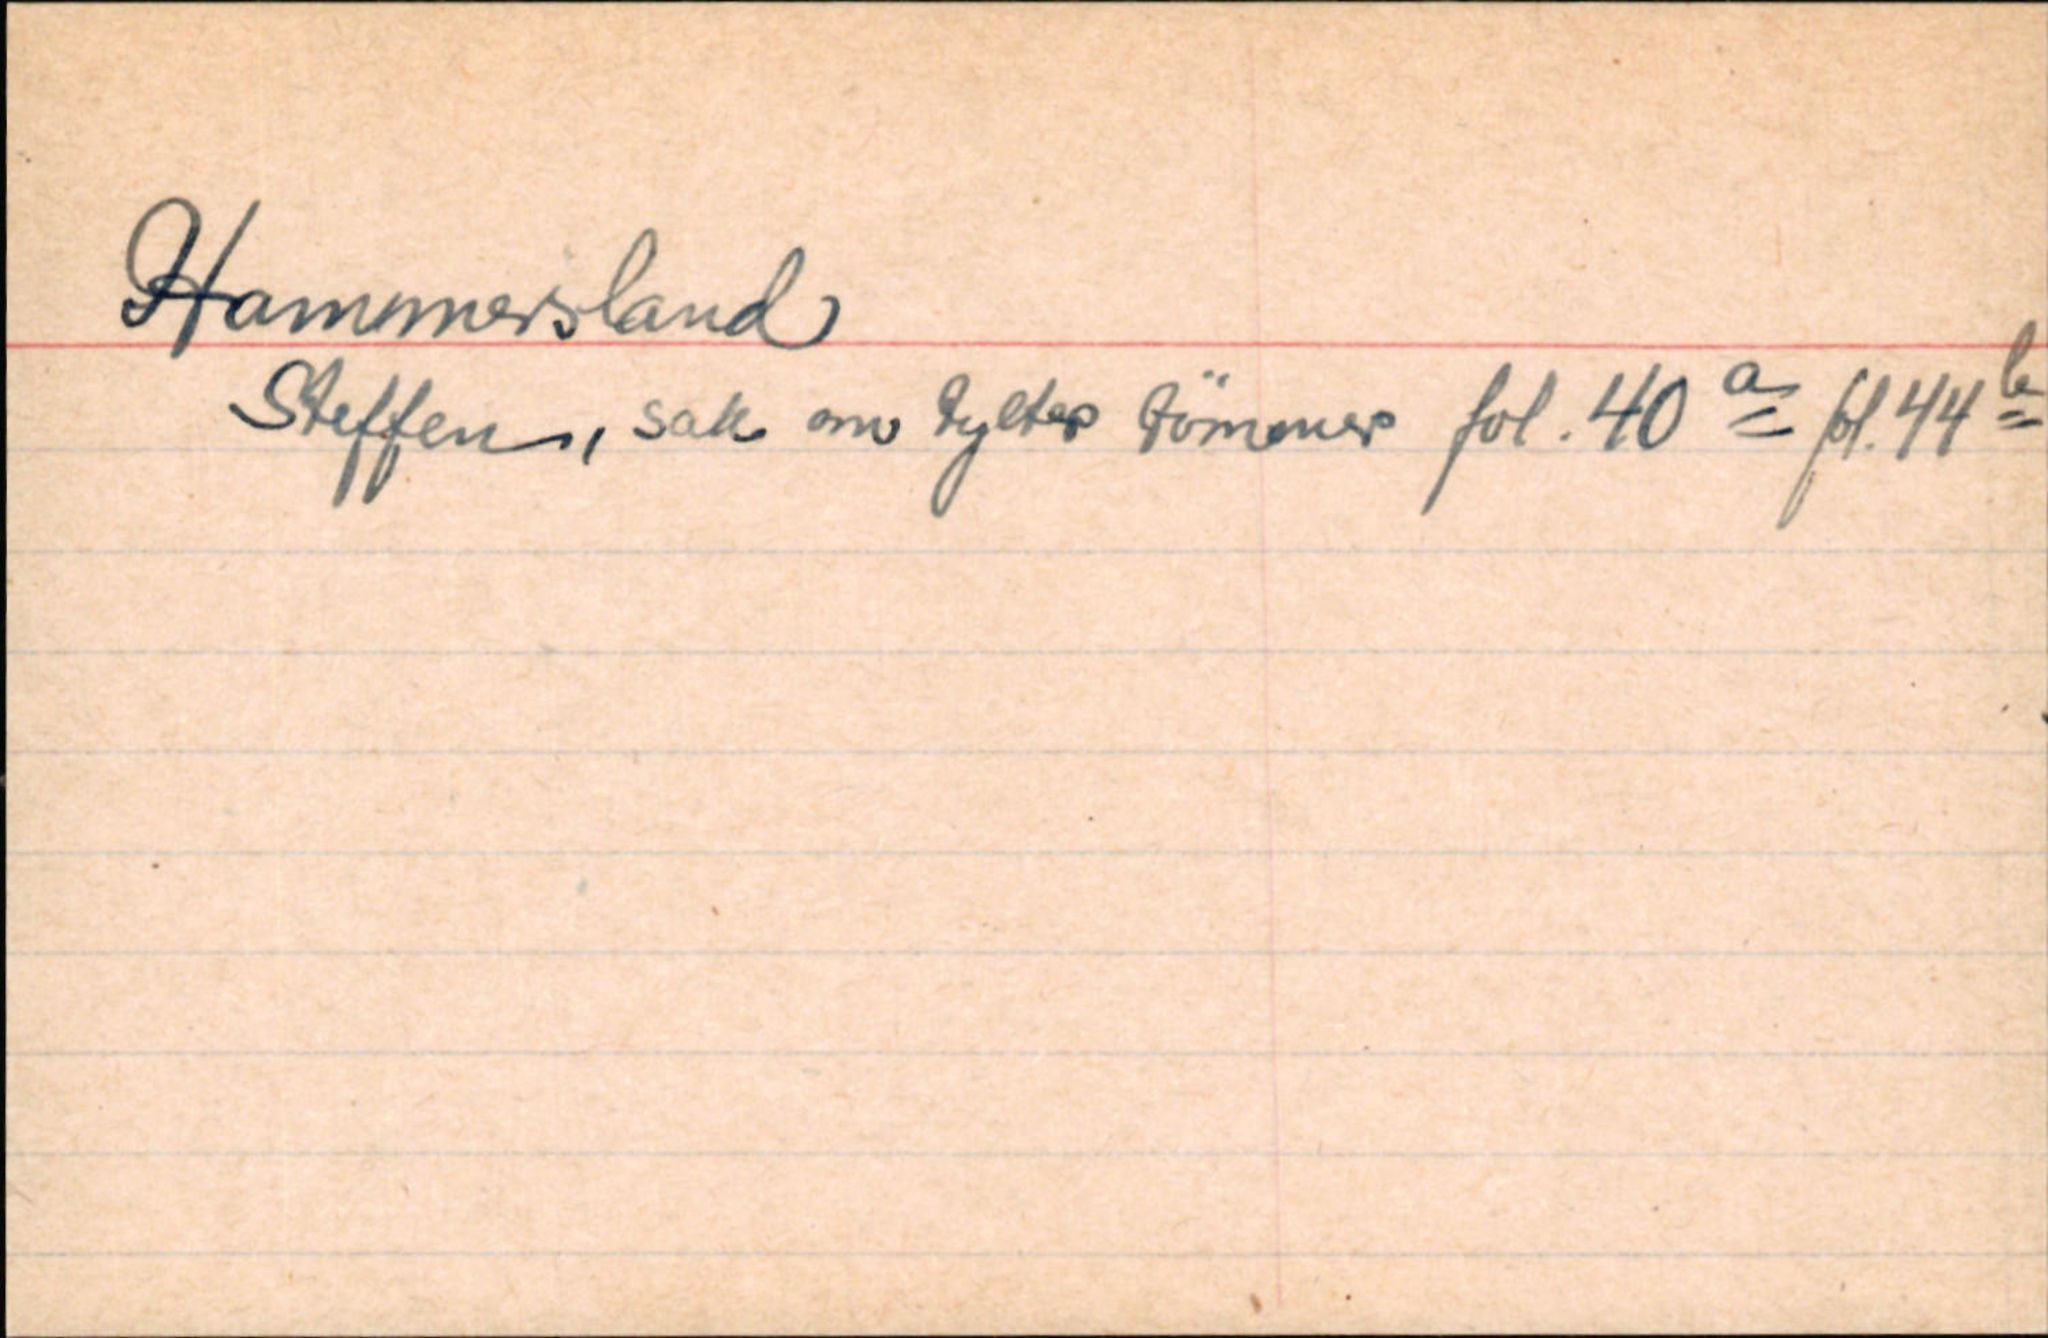 Hammersland
Steffen, sak om tylter tömmer fol. 40 a fol. 44 b